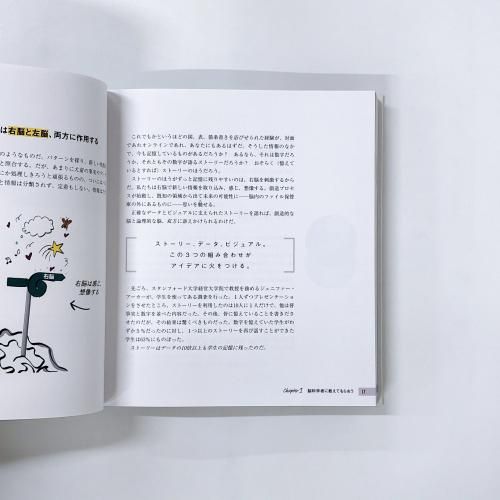 は右脳と左脳、両方に作用する
のようなものだ。パターンを探り、新しい情報
と照合する。だが、あまりに大量の
にか処理しきろうと頑張るものの、ついには
と情報は分類されず、定着もしない。情報は
右脳
右脳は感じ、
想像する
これでもかというほどの図、表、箇条書きを浴びせられた経験が、対面
であれオンラインであれ、あなたにもあるはずだ。そうした情報のなか
で、今も記憶しているものがあるだろうか？ あるなら、それは数字だろ
うか、それともその数字が語るストーリーだろうか？ おそらく（憶えて
いるとすれば）ストーリーのほうだろう。
ストーリーのほうがずっと記憶に残りやすいのは、右脳を刺激するから
だ。私たちは右脳で新しい情報を取り込み、感じ、想像する。創造プロセ
スが始動し、既知の領域から出て未来の可能性に――脳内のファイル保管
庫の外にあるものに――思いを馳せる。
正確なデータとビジュアルに支えられたストーリーを語れば、創造的な
脳と論理的な脳、双方に訴えかけられるわけだ。
ストーリー、データ、ビジュアル。
この３つの組み合わせが
アイデアに火をつける。
先ごろ、スタンフォード大学経営大学院で教授を務めるジェニファー・
アーカーが、学生を使ってある調査を行った。１人ずつプレゼンテーショ
ンをさせたところ、ストーリーを利用したのは10人に１人だけで、他は皆
事実と数字を並べた内容だった。その後、皆に憶えていることを書きださ
せたのだが、その結果は驚くべきものだった。数字を憶えていた学生がわ
ずか５％だったのに対し、１つ以上のストーリーを再び話すことができた
学生は63％にものぼった。
ストーリーはデータの10倍以上も学生の記憶に残ったのだ。
Chapter 1 脳科学者に教えてもらおう 17